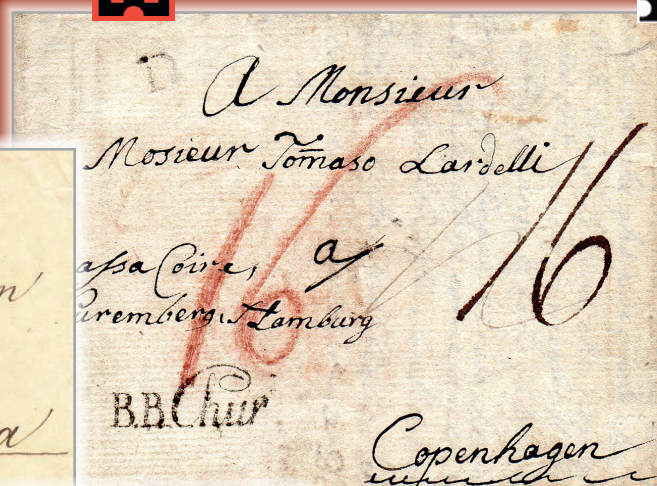 A Monsieur
Mosieur Tom̄aso Lardelli
16
16
assa Coire, a
uremberg, Hamburg
B.B. Chur
Copenhagen